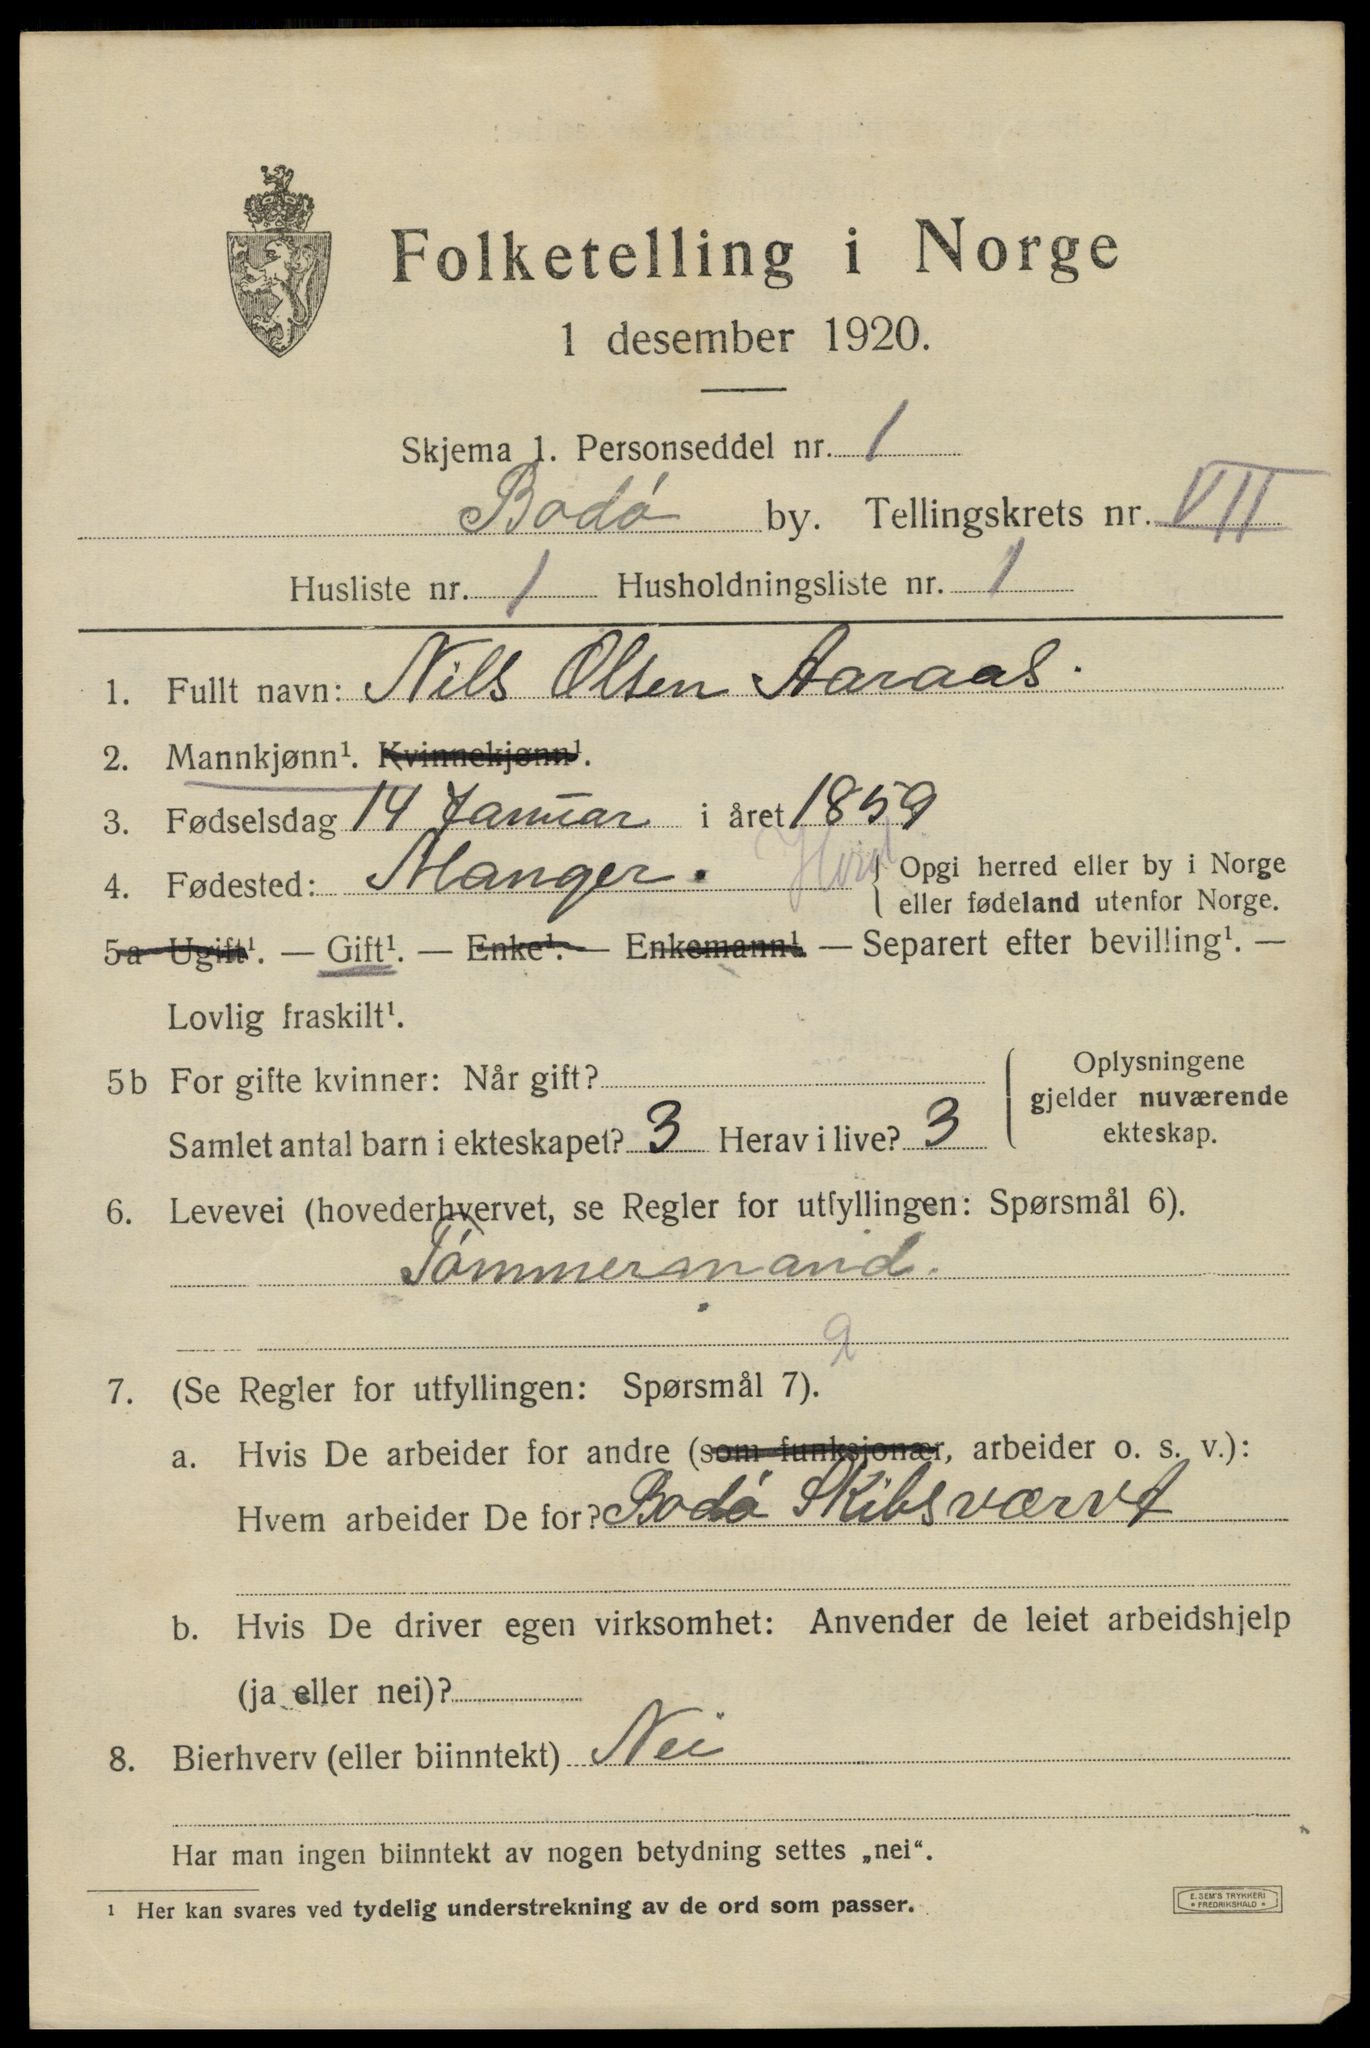 Folketelling i Norge
1 desember 1920.
Skjema 1. Personseddel nr. 1
Bodó by. Tellingskrets nr. VII
Husliste nr. 1 Husholdningsliste nr. 1
1. Fullt navn: Nils Olsen Aaraas.
2. Mannkjønn¹. Kvinnekjønn¹.
3. Fødselsdag 14 Januar i året 1859
4. Fødested: Manger. Hord { Opgi herred eller by i Norge
eller fødeland utenfor Norge.
5a Ugift¹. — Gift¹. — Enke¹. — Enkemann¹. — Separert efter bevilling¹. —
Lovlig fraskilt¹.
5b For gifte kvinner: Når gift?
Samlet antal barn i ekteskapet? 3 Herav i live? 3
Oplysningene
gjelder nuværende
ekteskap.
6. Levevei (hovederhvervet, se Regler for utfyllingen: Spørsmål 6).
Tómmermand.
a
7. (Se Regler for utfyllingen: Spørsmål 7).
a. Hvis De arbeider for andre (som funksjonær, arbeider o. s. v.):
Hvem arbeider De for? Bodó Skibsværvt
b. Hvis De driver egen virksomhet: Anvender de leiet arbeidshjelp
(ja eller nei)?
8. Bierhverv (eller biinntekt) Nei
Har man ingen biinntekt av nogen betydning settes „nei“.
¹ Her kan svares ved tydelig understrekning av de ord som passer.
E. SEM'S TRYKKERI
* FREDRIKSHALD *